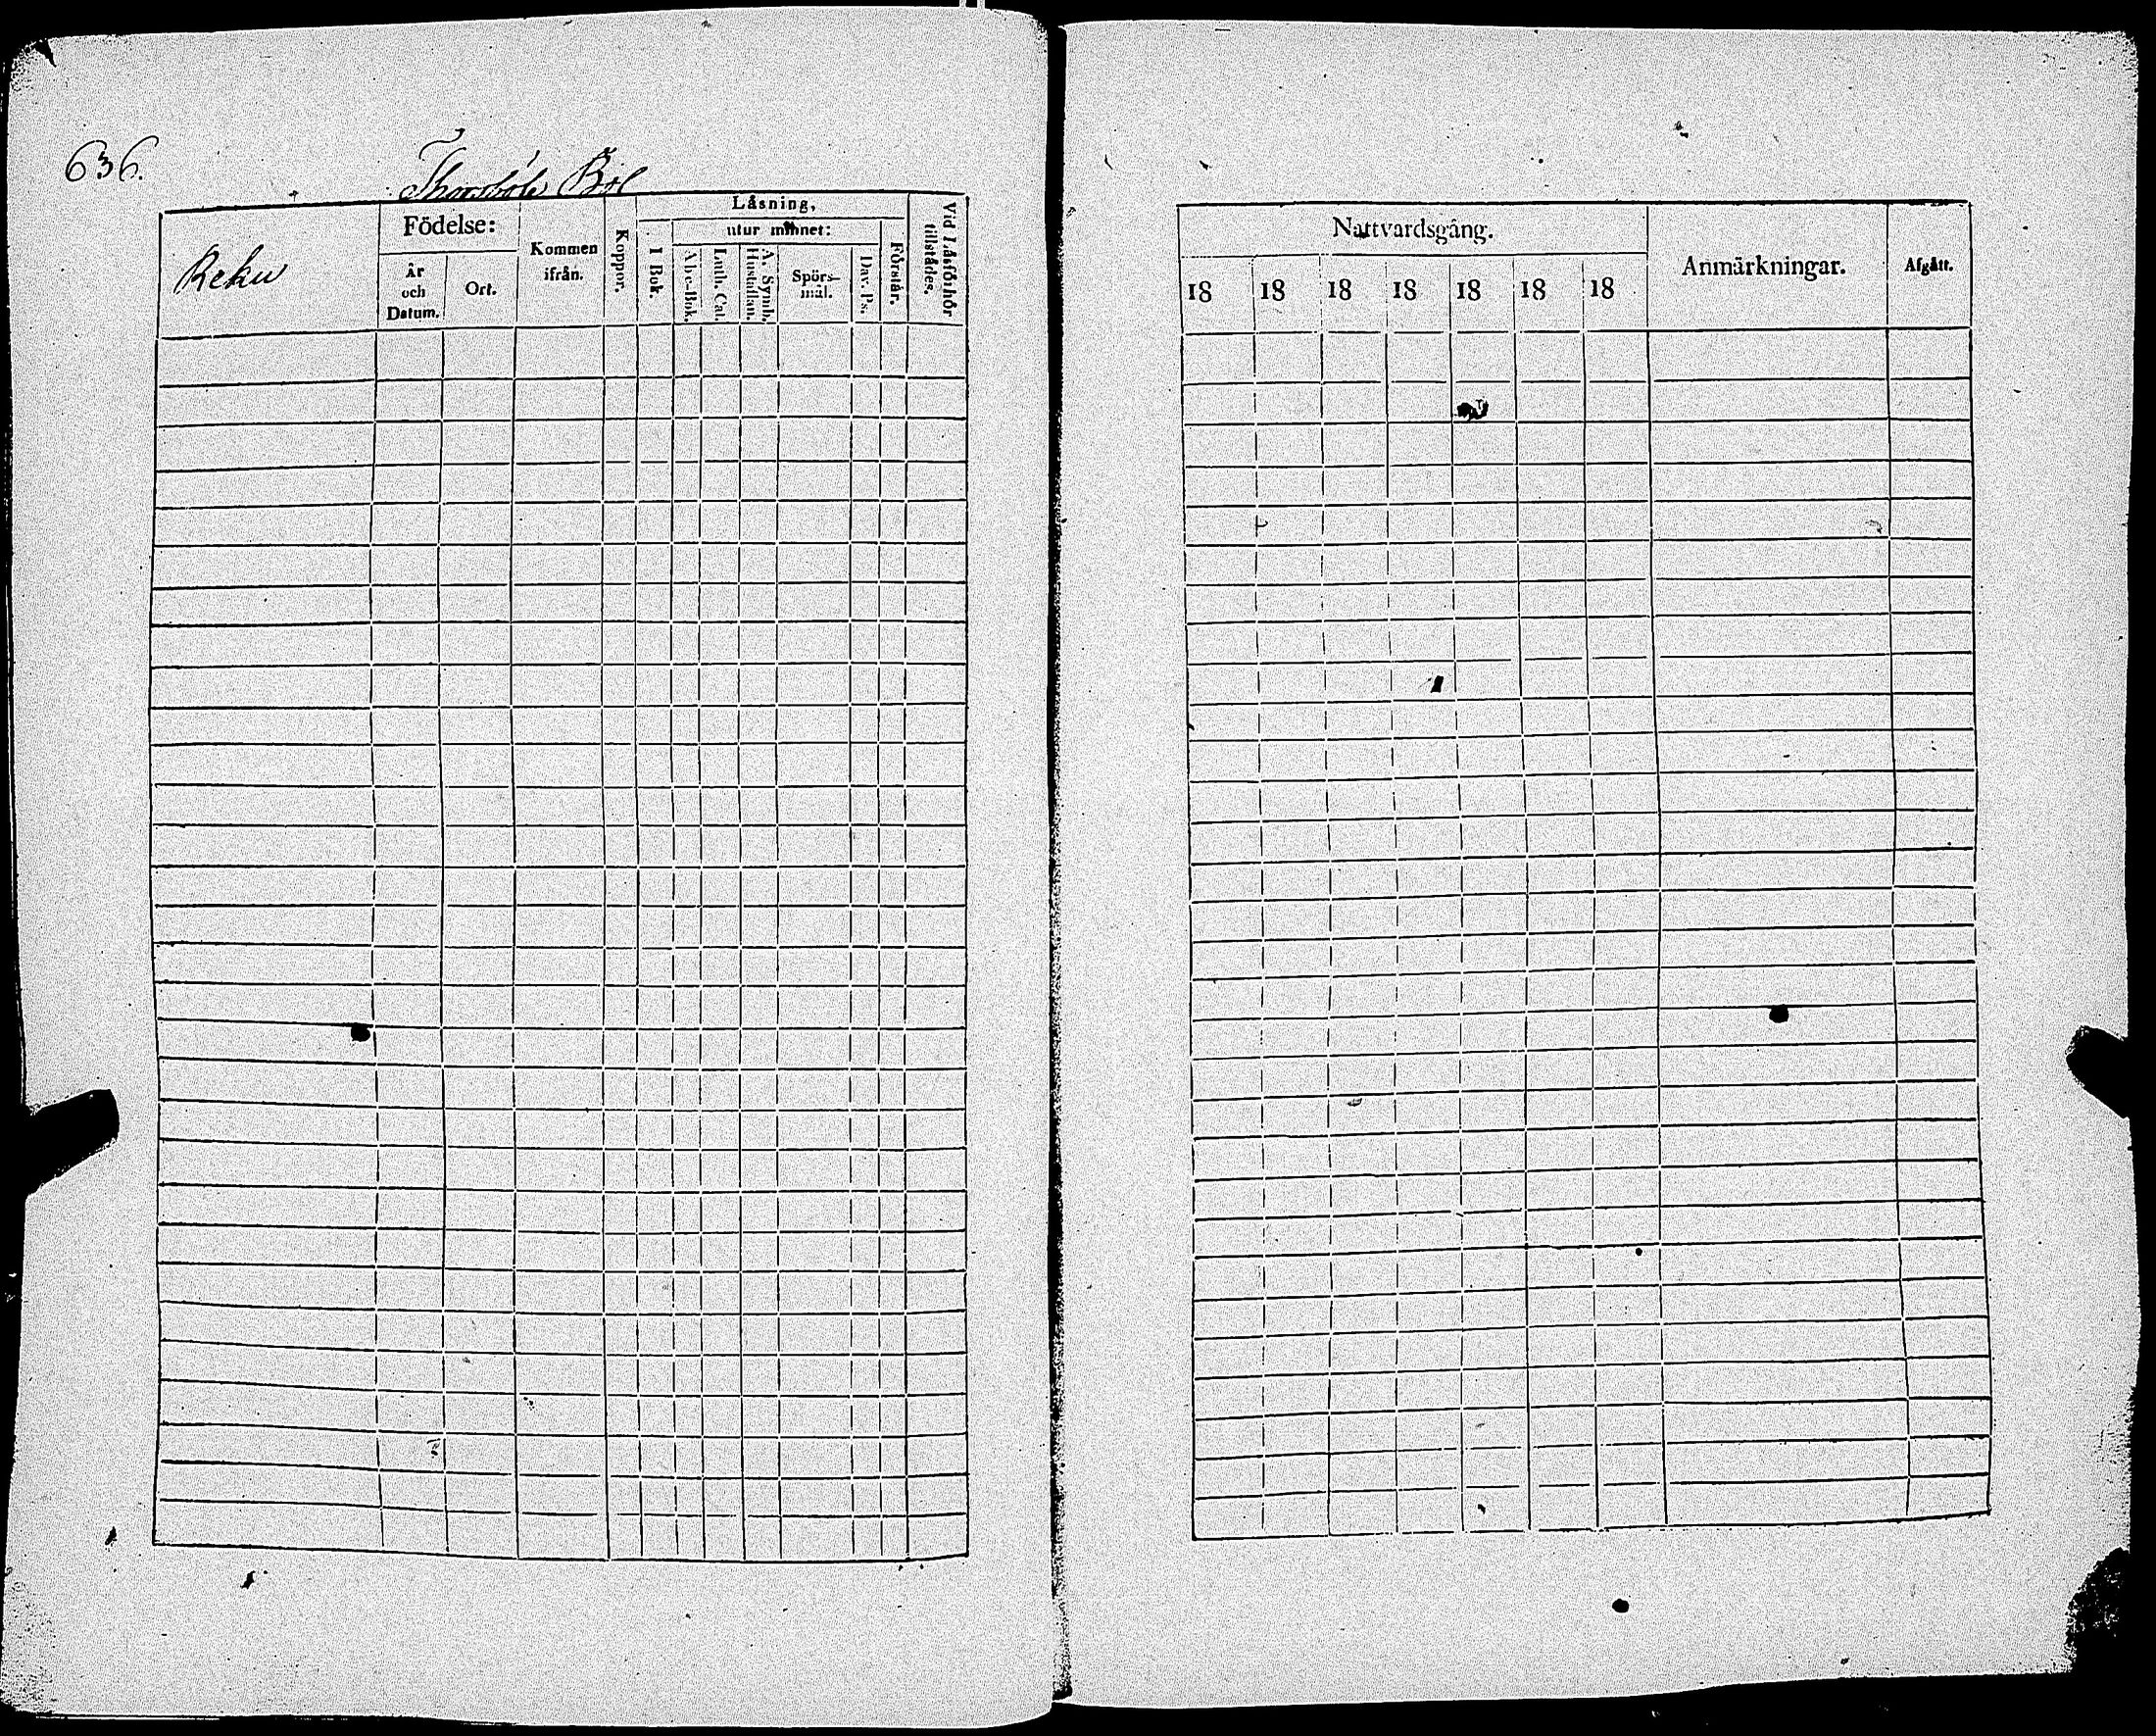 636.
Thorsböle Bol
Reku
Födelse:
År och Datum.
Ort.
Kommen ifrån.
Koppor.
Låsning,
utur minnet:
I Bok.
Abc-Bok.
Luth. Cat.
A. Symb. Hustaflan.
Spörs-
mål.
Dav. Ps.
Förstår.
Vid Låsförhör tillstädes.
Nattvardsgång.
18 18 18 18 18 18 18
Anmärkningar.
Afgått.